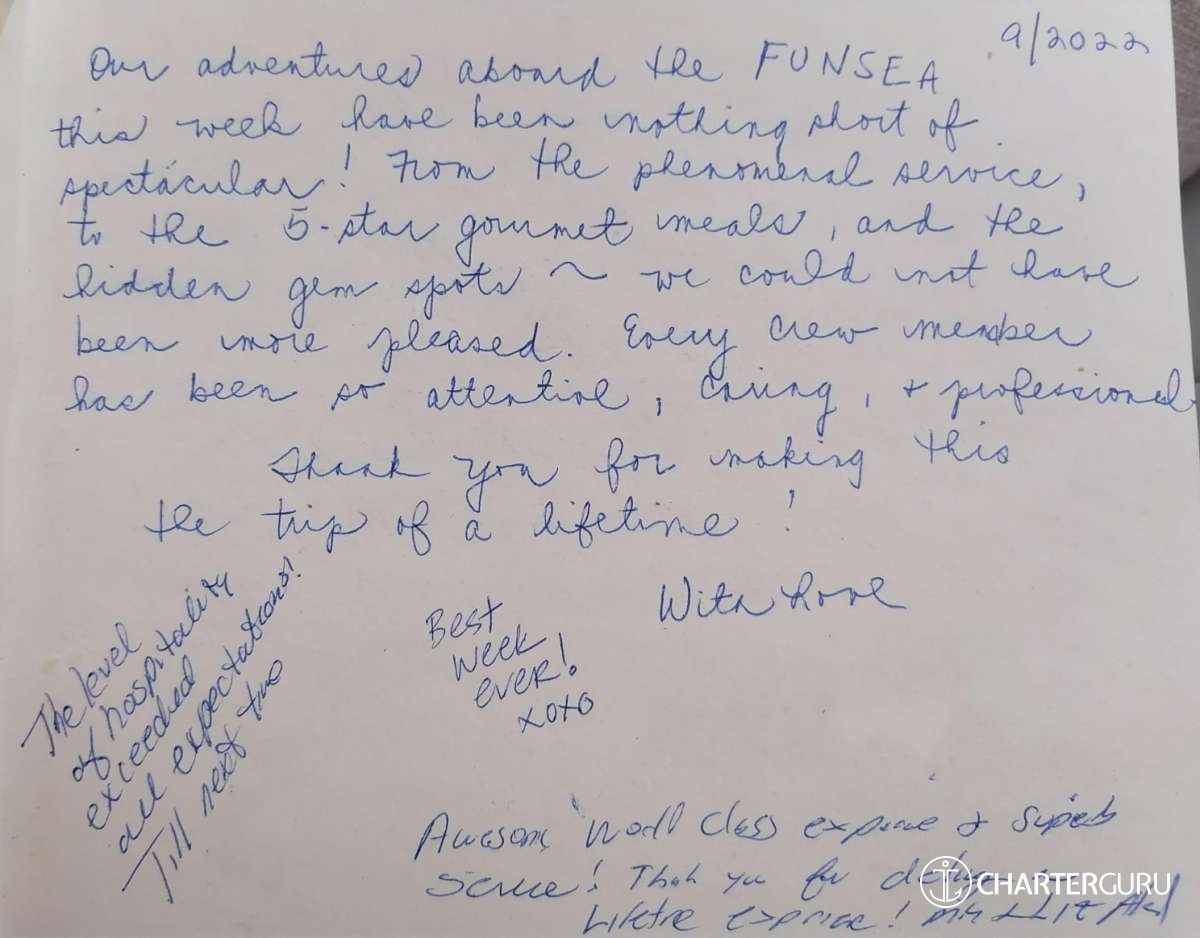 9/2022
Our adventures aboard the FUNSEA
this week have been nothing short of
spectacular! From the phenomenal service,
to the 5-star gourmet meals, and the
hidden gem spots ~ we could not have
been more pleased. Every crew member
has been so attentive, caring, + professional.
Thank you for making this
the trip of a lifetime!
With Love
Best
week
ever!
xoxo
The level
of hospitality
exceeded
all expectations!
Till next time
Awesome World Class experience & Superb
Service! Thank you for
Lifetime experience!
CHARTERGURU